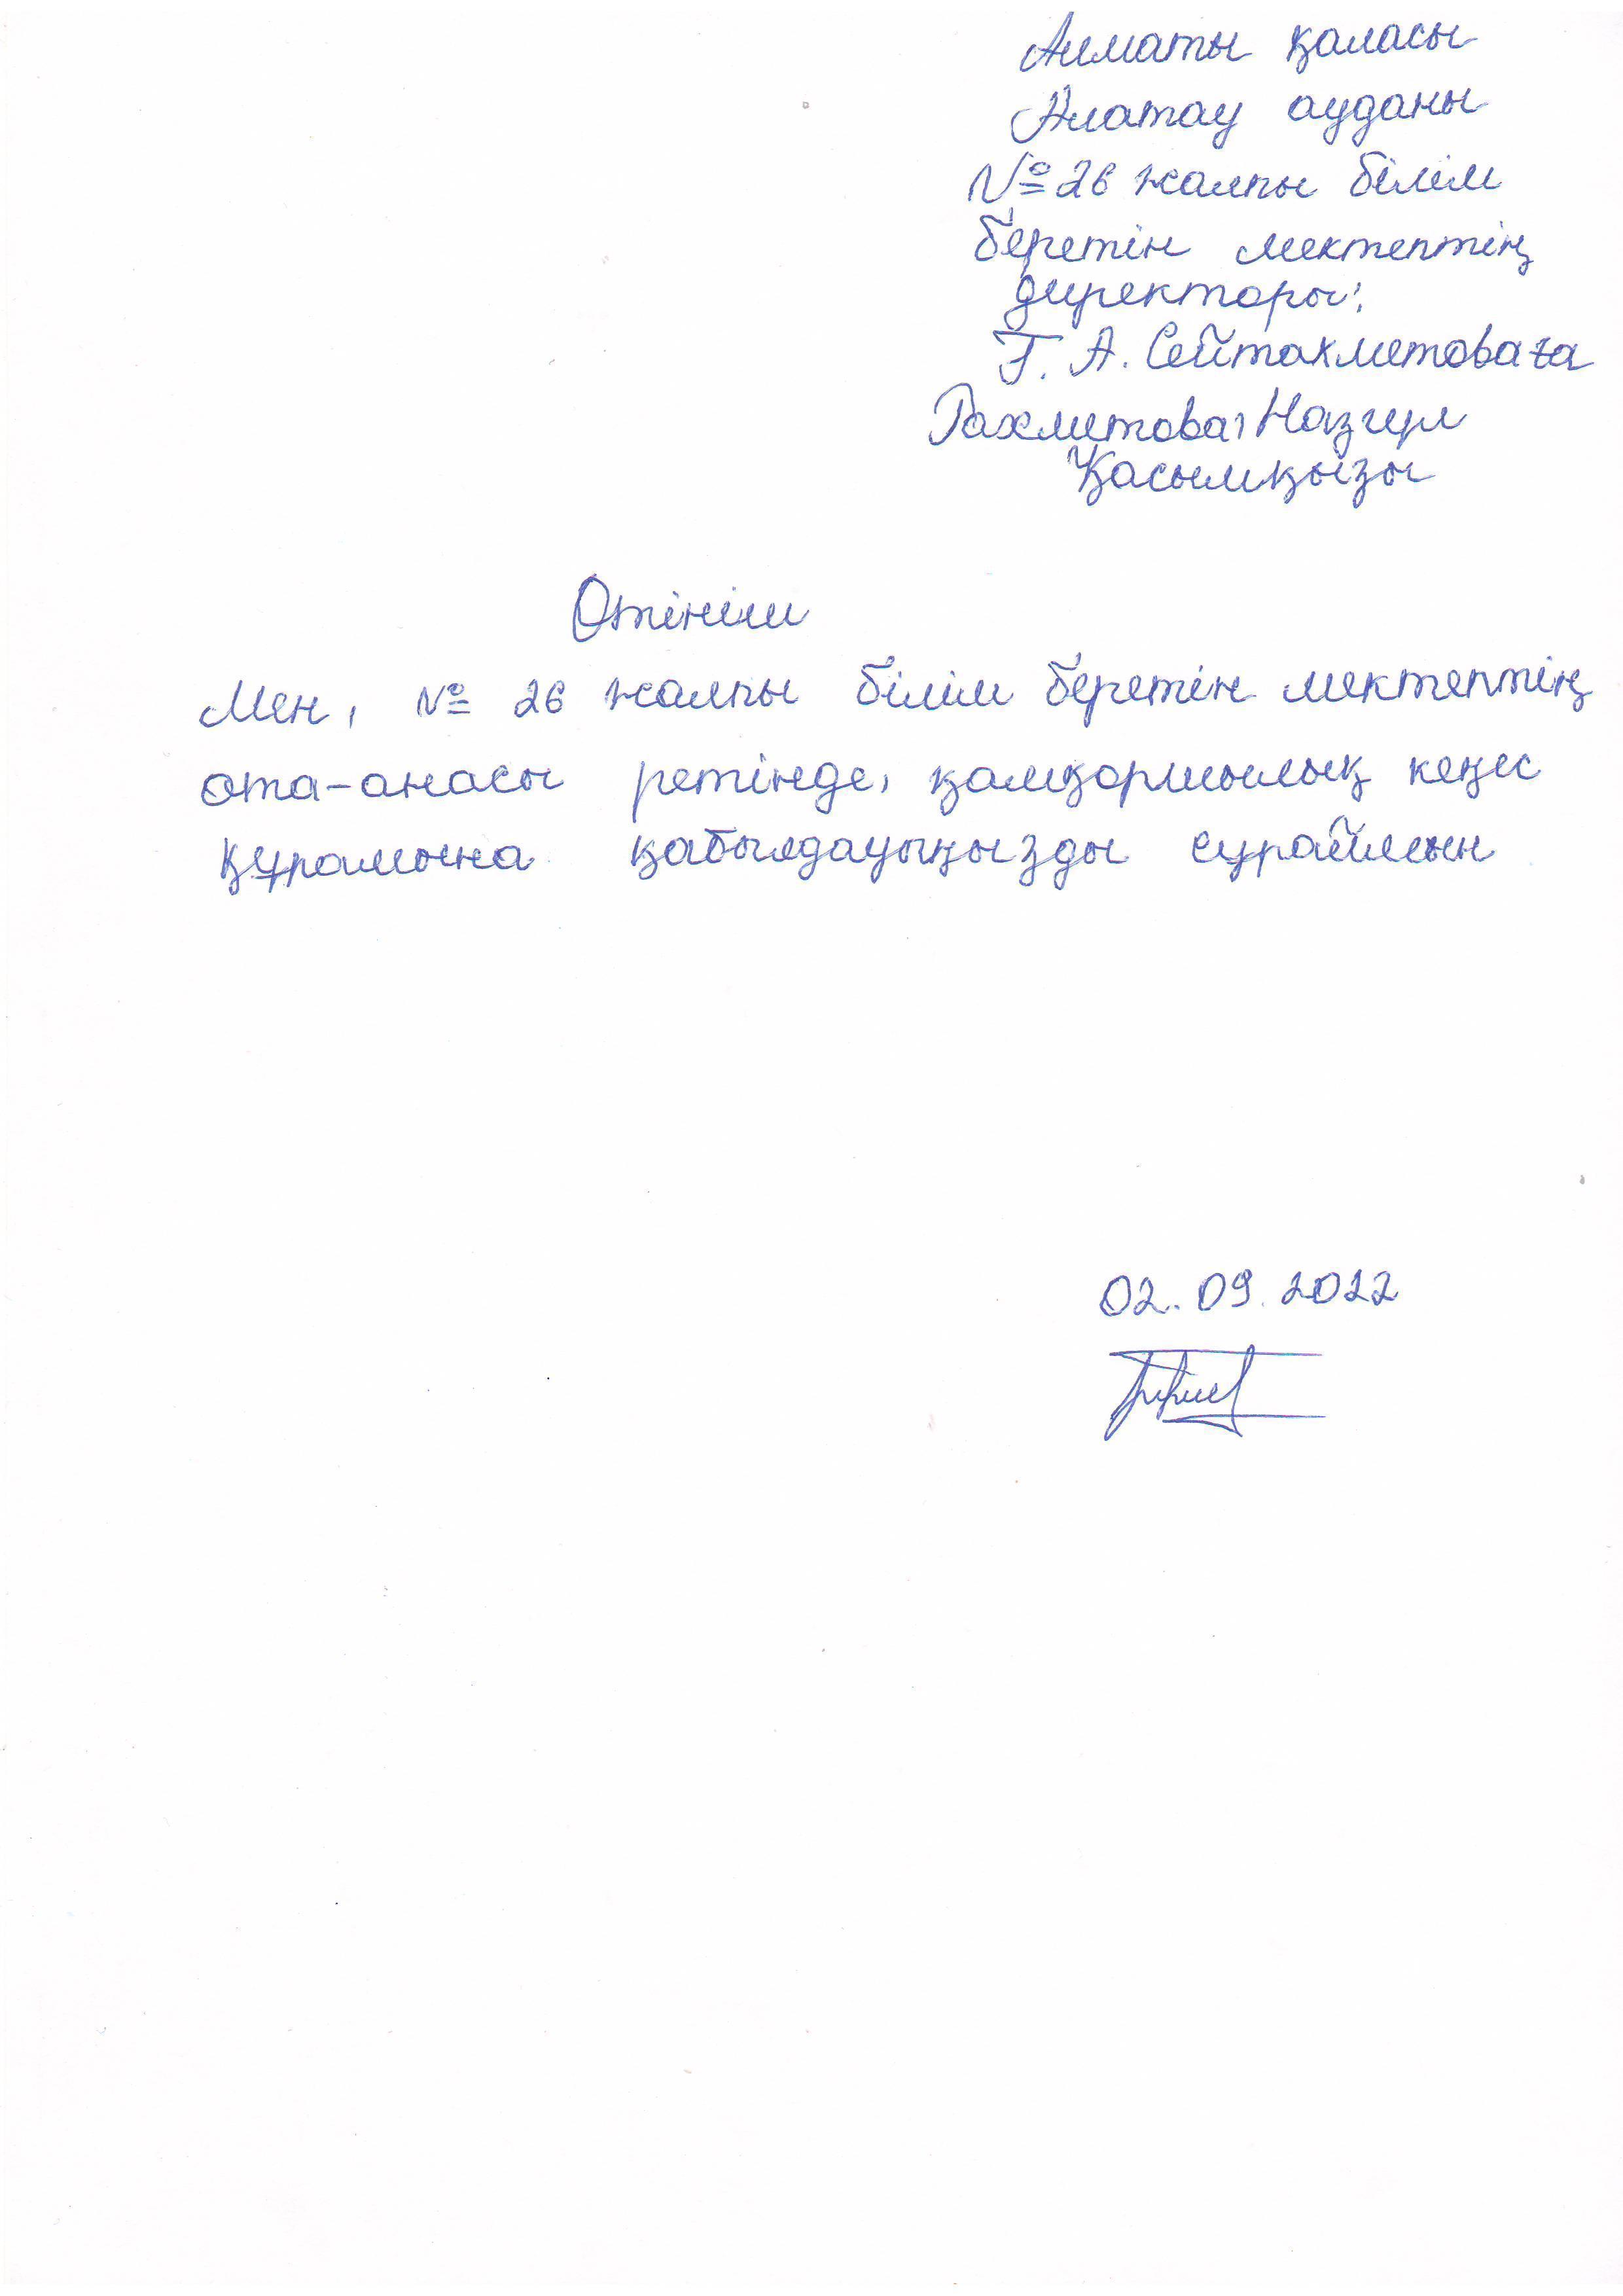 Алматы қаласы
Алатау ауданы
№ 26 жалпы білім
беретін мектептің
директоры:
Г. А. Сейтахметоваға
Рахметова Назгул
Қасымқызы
Өтініш
Мен, № 26 жалпы білім беретін мектептің
ата-анасы ретінде, қамқоршылық кеңес
құрамына қабылдауыңызды сұраймын
02.09.2022